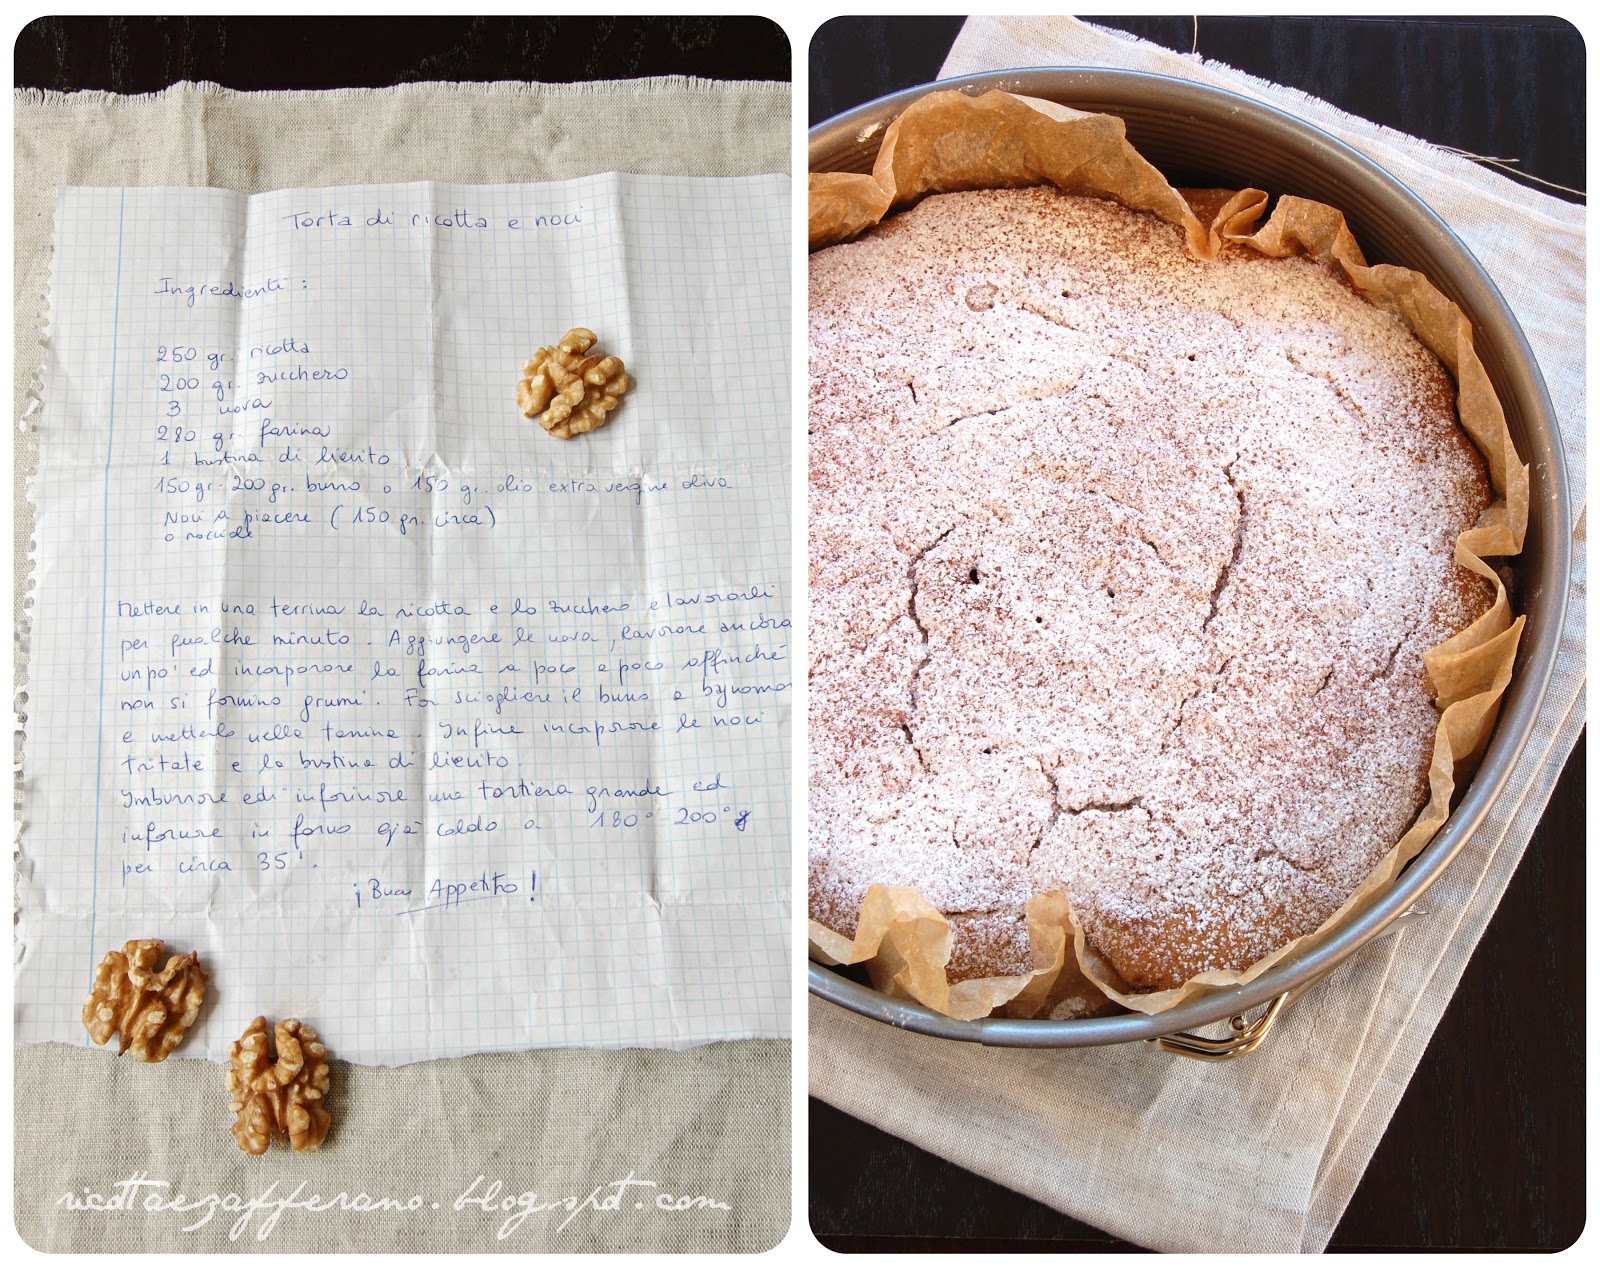 Torta di ricotta e noci
Ingredienti :
250 gr. ricotta
200 gr. zucchero
3 uova
280 gr. farina
1 bustina di lievito
150 gr - 200 gr. burro o 150 gr. olio extra vergine oliva
Noci a piacere ( 150 gr. circa)
o nocciole
Mettere in una terrina la ricotta e lo zucchero e lavorarli
per qualche minuto. Aggiungere le uova, lavorare ancora
un po' ed incorporare la farina a poco a poco affinché
non si formino grumi. Far sciogliere il burro a bagnomar
e metterlo nella terrina. Infine incorporare le noci
tritate e la bustina di lievito.
Imburrare ed infarinare una tortiera grande ed
infornare in forno già caldo a 180° - 200°
per circa 35'.
¡Buon Appetito!
ricottaezafferano.blogspot.com